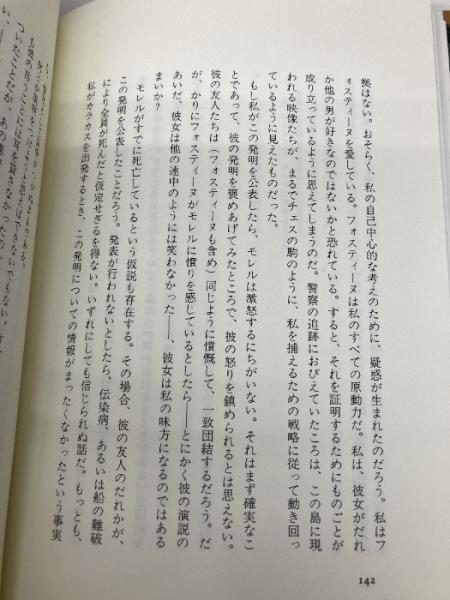 拠はない。おそらく、私の自己中心的な考えのために、疑惑が生まれたのだろう。私はフ
ォスティーヌを愛している。フォスティーヌは私のすべての原動力だ。私は、彼女がだれ
か他の男が好きなのではないかと恐れている。すると、それを証明するためにものごとが
成り立っているように思えてしまうのだ。警察の追跡におびえていたころは、この島に現
われる映像たちが、まるでチェスの駒のように、私を捕えるための戦略に従って動き回っ
ているように見えたものだった。
もし私がこの発明を公表したら、モレルは激怒するにちがいない。それはまず確実なこ
とであって、彼の発明を褒めあげてみたところで、彼の怒りを鎮められるとは思えない。
彼の友人たちは（フォスティーヌも含め）同じように憤慨して、一致団結するだろう。だ
が、かりにフォスティーヌがモレルに憤りを感じているとしたら——とにかく彼の演説の
あいだ、彼女は他の連中のようには笑わなかった——、彼女は私の味方になるのではある
まいか？
モレルがすでに死亡しているという仮説も存在する。その場合、彼の友人のだれかが、
この発明を公表したことだろう。発表が行われないとしたら、伝染病、あるいは船の難破
により全員が死んだと仮定せざるを得ない。いずれにしても信じられぬ話だ。もっとも、
私がカラカスを出発するとき、この発明についての情報がまったくなかったという事実
142